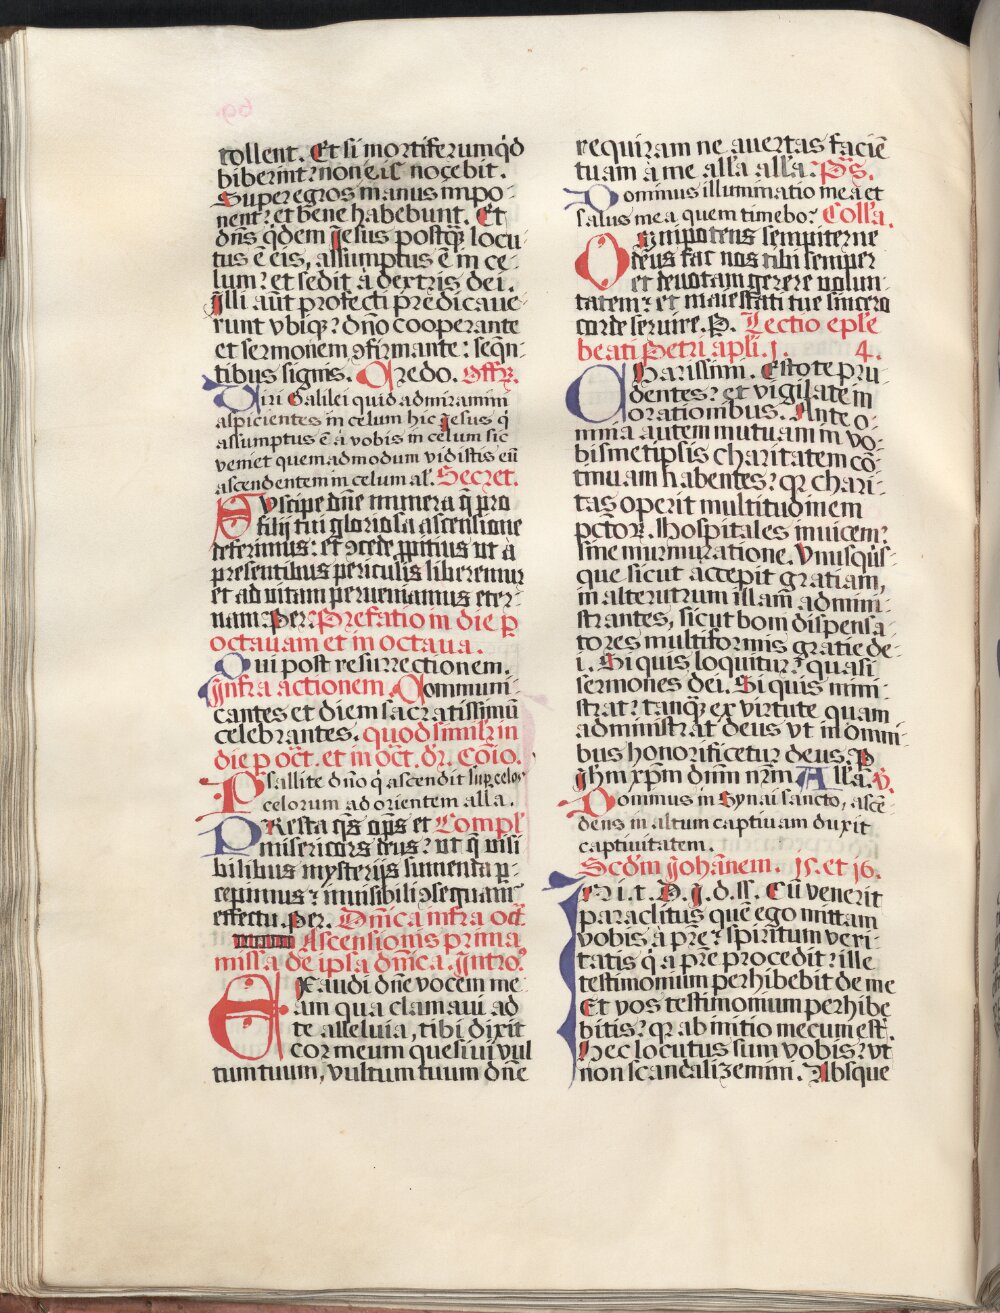 tollent. Et si mortiferum qd
biberint? non eis nocebit.
Super egros manus impo-
nent? et bene habebunt. Et
dns qdem Jesus postq locu-
tus ē eis, assumptus ē in ce-
lum? et sedit à dextris dei.
Illi aūt profecti predicaue-
runt vbiq? dño cooperante
et sermonem ꝯfirmante: seqñ-
tibus signis. Credo. Offr.
Viri Galilei quid admiramini
aspicientes in celum hic Jesus q
assumptus ē à vobis in celum sic
veniet quemadmodum vidistis eū
ascendentem in celum al. Secret.
Suscipe dñe munera q̄ pro
filij tui gloriosa ascensione
deferimus: et ꝯcede ꝓpitius ut à
presentibus periculis liberemur
et ad uitam perueniamus eter-
nam: Per: Prefatio in die p
octauam et in octaua.
Qui post resurrectionem.
Infra actionem. Communi-
cantes et diem sacratissimū
celebrantes. quod similr in
die p oct. et in oct. dr. Coīo.
Psallite dño q ascendit sup celos
celorum ad orientem alla.
PResta qs ops et Compl
misericors deus? ut q̄ uisi
bilibus mysterijs sumenda p-
cepimus? inuisibili ꝯsequamr
effectu. Per. Dñica infra oct
Ascensionis prima
missa de ipsa dñica. Intro.
EXaudi dñe vocem me-
am qua clamaui ad
te alleluia, tibi dixit
cor meum quesiui vul
tum tuum, vultum tuum dñe
requiram ne auertas faciē
tuam à me alla alla. Ps.
Dominus illuminatio mea et
salus mea quem timebo? Colla.
Omnipotens sempiterne
deus fac nos tibi semper
et deuotam gerere uolun-
tatem? et maiestati tue sincero
corde seruire. P. Lectio eple
beati Petri apli. j. 4.
CHarissimi. Estote pru-
dentes? et vigilate in
orationibus. Ante o-
mnia autem mutuam in vo-
bismetipsis charitatem cō-
tinuam habentes? qr chari-
tas operit multitudinem
pctor. Hospitales inuicem?
sine murmuratione. Vnusqs-
que sicut accepit gratiam,
in alterutrum illam admini-
strantes, sicut boni dispensa-
tores multiformis gratie de-
i. Si quis loquitur? quasi
sermones dei. Si quis mini-
strat? tanq ex virtute quam
administrat deus vt in omni-
bus honorificetur deus. P
ihm xpm dnm nrm. Alla. V.
Dominus in Synai sancto, ascē-
dens in altum captiuam duxit
captiuitatem.
Scdm Johānem. 15. et 16.
IN i. t. D. J. d. ss. Cū venerit
paraclitus quē ego mittam
vobis à pre? spiritum veri-
tatis q à pre procedit? ille
testimonium perhibebit de me
Et vos testimonium perhibe
bitis? qr ab initio mecum est.
Hec locutus sum vobis? vt
non scandalizemini. Absque